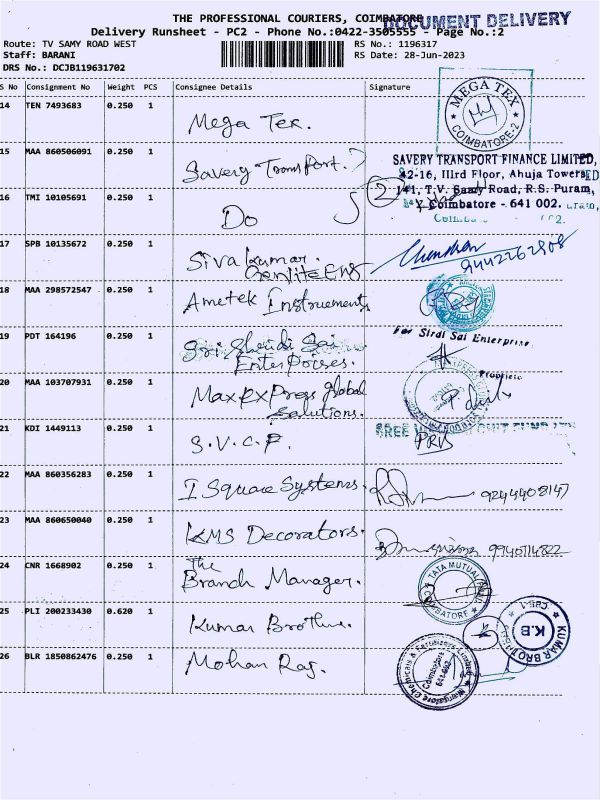 THE PROFESSIONAL COURIERS, COIMBATORE
DOCUMENT DELIVERY
Delivery Runsheet - PC2 - Phone No.:0422-3505555 - Page No.:2
Route: TV SAMY ROAD WEST
RS No.: 1196317
Staff: BARANI
RS Date: 28-Jun-2023
DRS No.: DCJB119631702
S No Consignment No Weight PCS Consignee Details Signature
14 TEN 7493683 0.250 1 Mega Tex.
MEGA TEX
COIMBATORE-2
15 MAA 860506091 0.250 1 Savery Transport.
SAVERY TRANSPORT FINANCE LIMITED,
42-16, IIIrd Floor, Ahuja Towers
141, T.V. Samy Road, R.S. Puram,
Coimbatore - 641 002.
16 TMI 10105691 0.250 1 Do
2
17 SPB 10135672 0.250 1 Siva kumar.
9442262908
18 MAA 298572547 0.250 1 Ametek Instruements
19 PDT 164196 0.250 1 Sri Sheudi Sai
Enterpoises.
For Sirdi Sai Enterprise
20 MAA 103707931 0.250 1 Maxexpress global
Salutions.
21 KDI 1449113 0.250 1 S.V.C.F.
22 MAA 860356283 0.250 1 I Square Systems. 9244408147
23 MAA 860650040 0.250 1 KMS Decorators. 9940714822
24 CNR 1668902 0.250 1 The
Branch Manager.
TATA MUTUAL
COIMBATORE
25 PLI 200233430 0.620 1 Kumar Brothers.
K.B
KUMAR BROTHERS
CBE-1
26 BLR 1850862476 0.250 1 Mohan Raj.
Mangalore Chemicals & Fertilizers Limited
Coimbatore
641 002